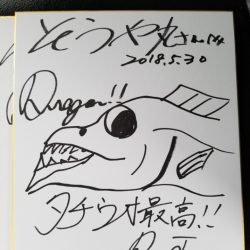 とうや丸さん江
2018.5.30
Dragon!!
タチウオ最高!!